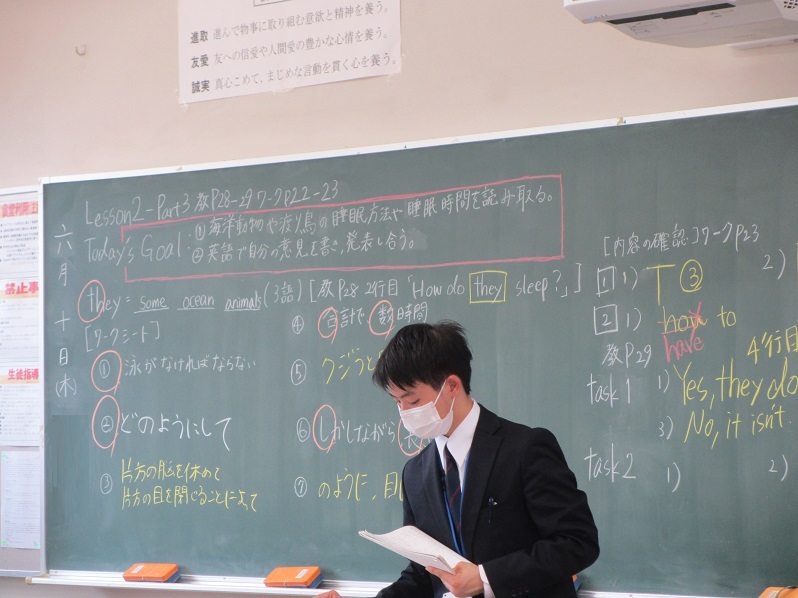 進取 進んで物事に取り組む意欲と精神を養う。
友愛 友への信愛や人間愛の豊かな心情を養う。
誠実 真心こめて、まじめな言動を貫く心を養う。
禁止事
生徒指導
六月十日(木)
Lesson2-Part3 教P28-29 ワークp22-23
Today's Goal: ①海洋動物や渡り鳥の睡眠方法や睡眠時間を読み取る。
②英語で自分の意見を書き、発表し合う。
they = some ocean animals (3語) [教P28 2行目 "How do they sleep?"]
[ワークシート]
① 泳がなければならない
② どのようにして
③ 片方の脳を休めて
片方の目を閉じることによって
④ 合計で 数時間
⑤ クジラと
⑥ しかしながら
⑦ のように、
[内容の確認] ワークP23
1 1) T ③ 2)
2 1) how to
have
教P29 4行目
task1 1) Yes, they do
3) No, it isn't.
task2 1) 2)